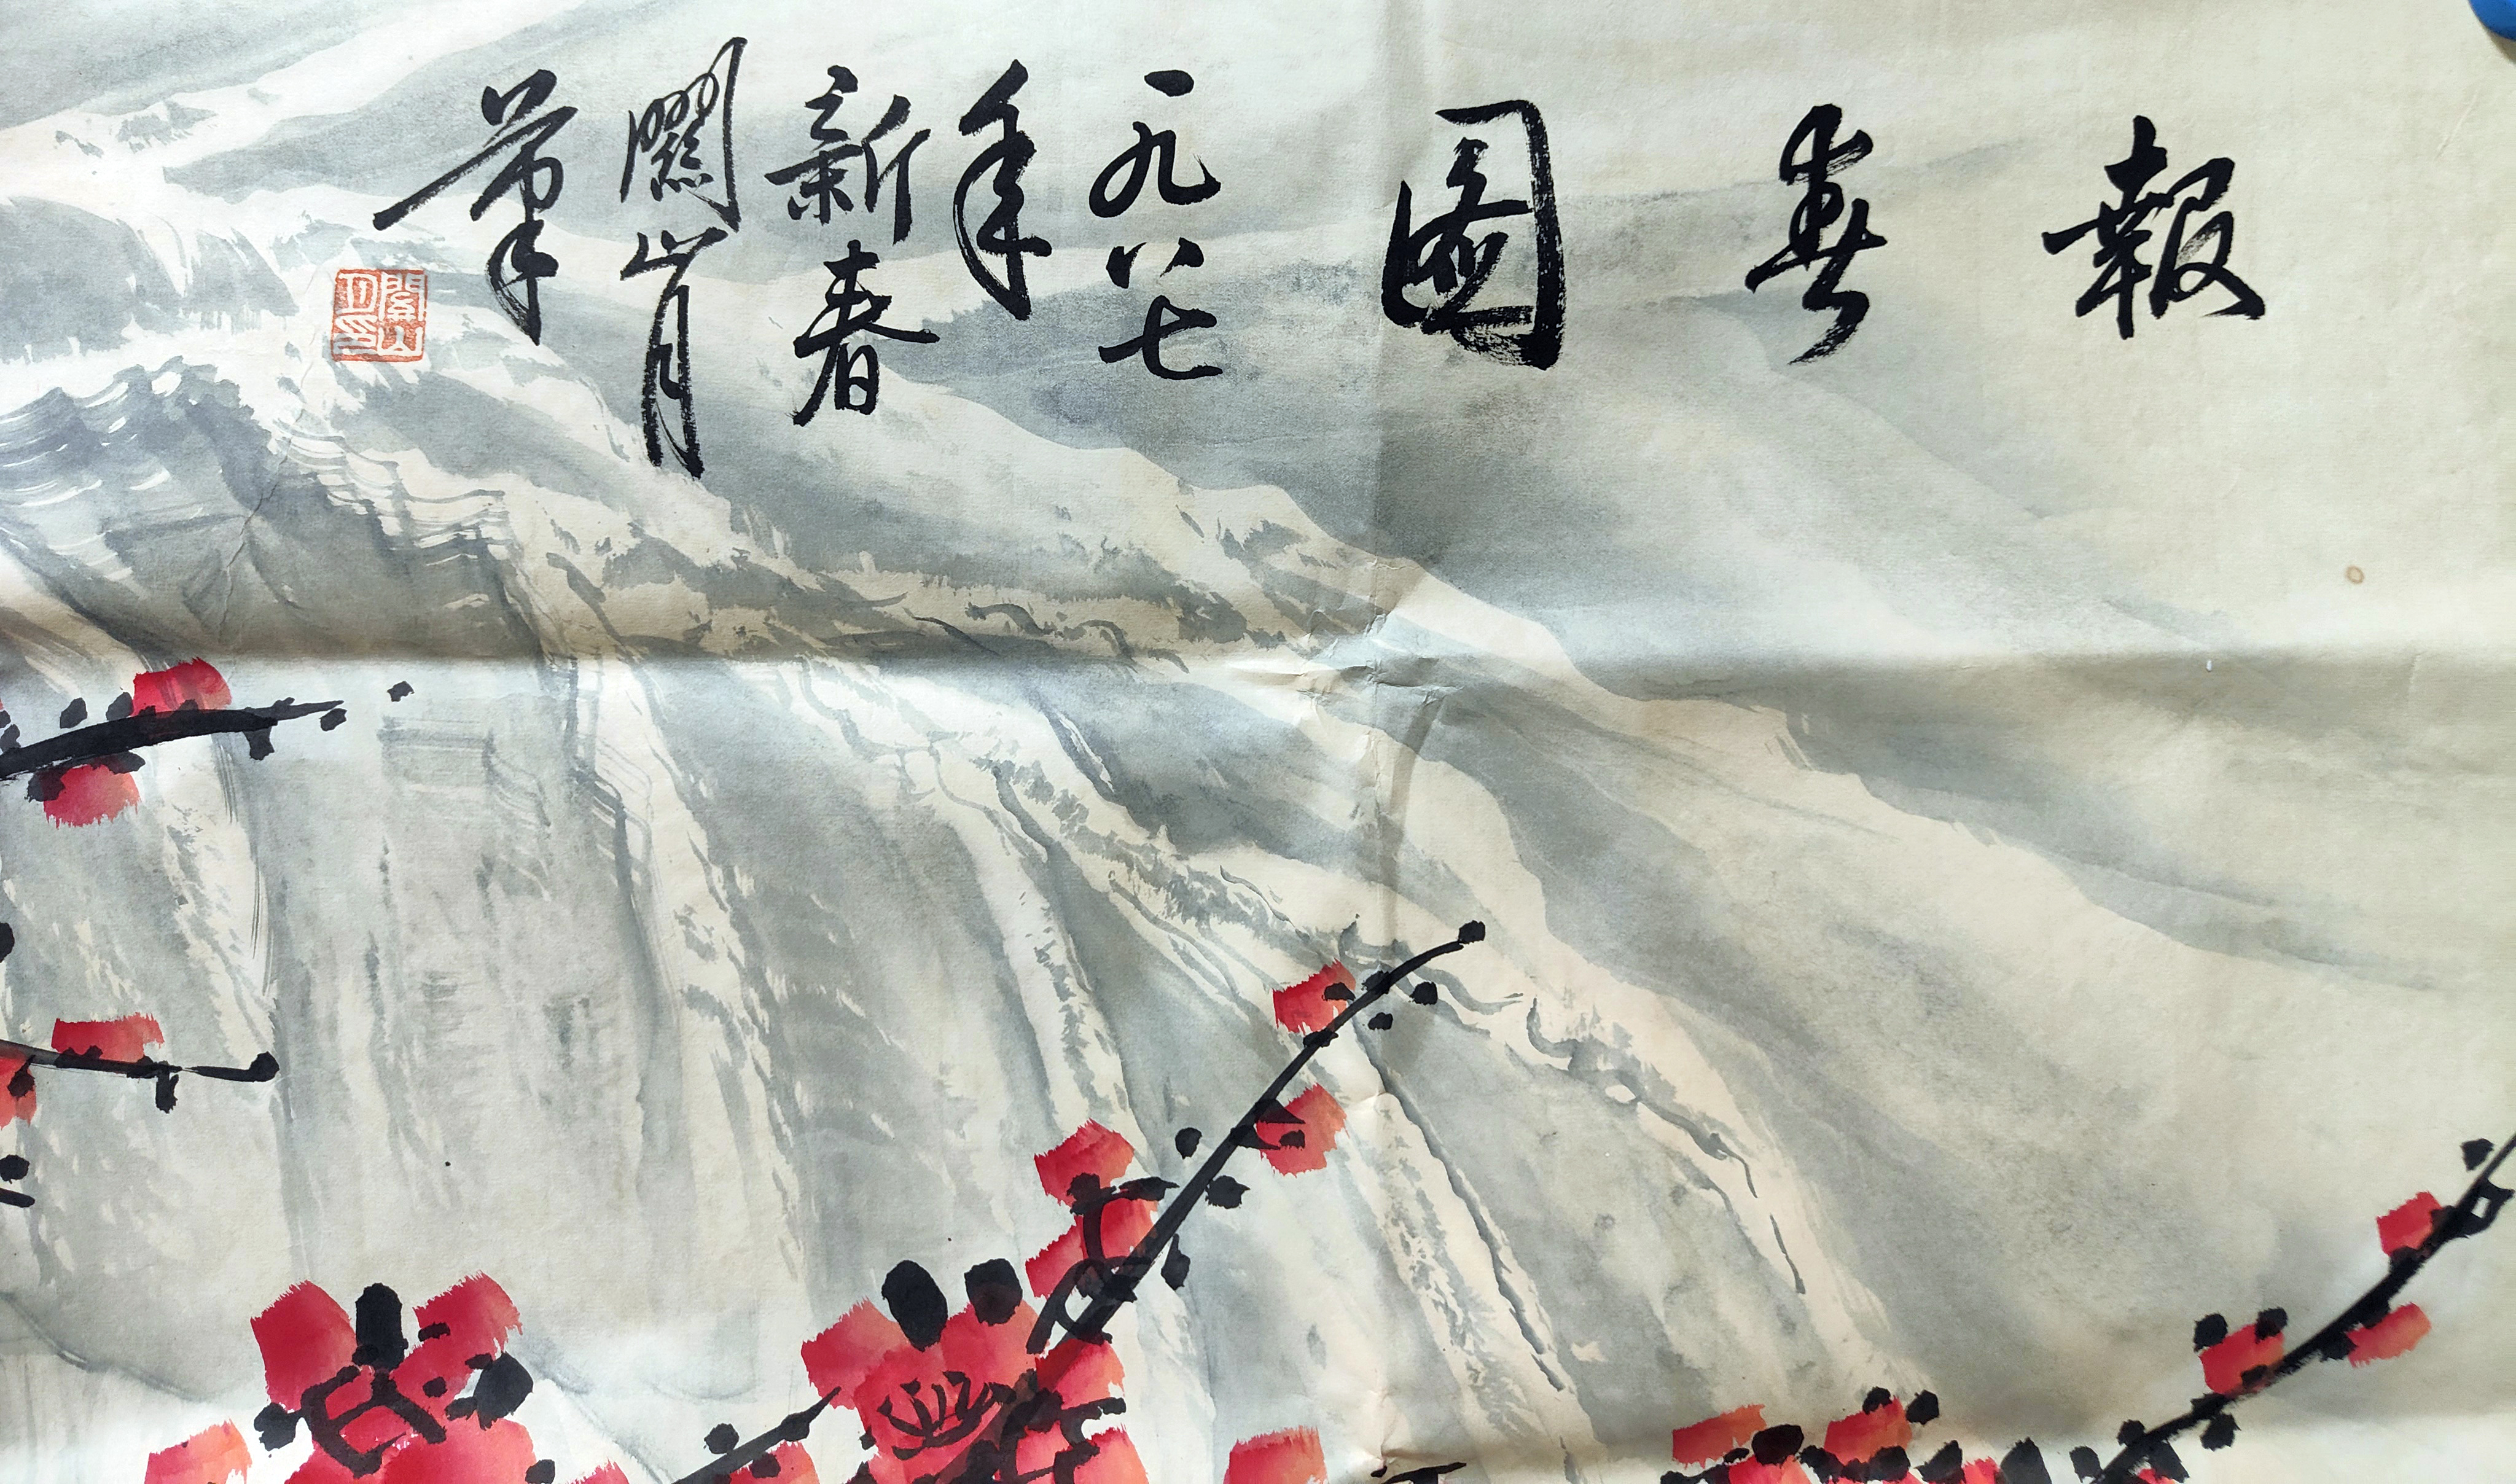 報春圖
一九八七
年
新春
關山月
筆
關山月印